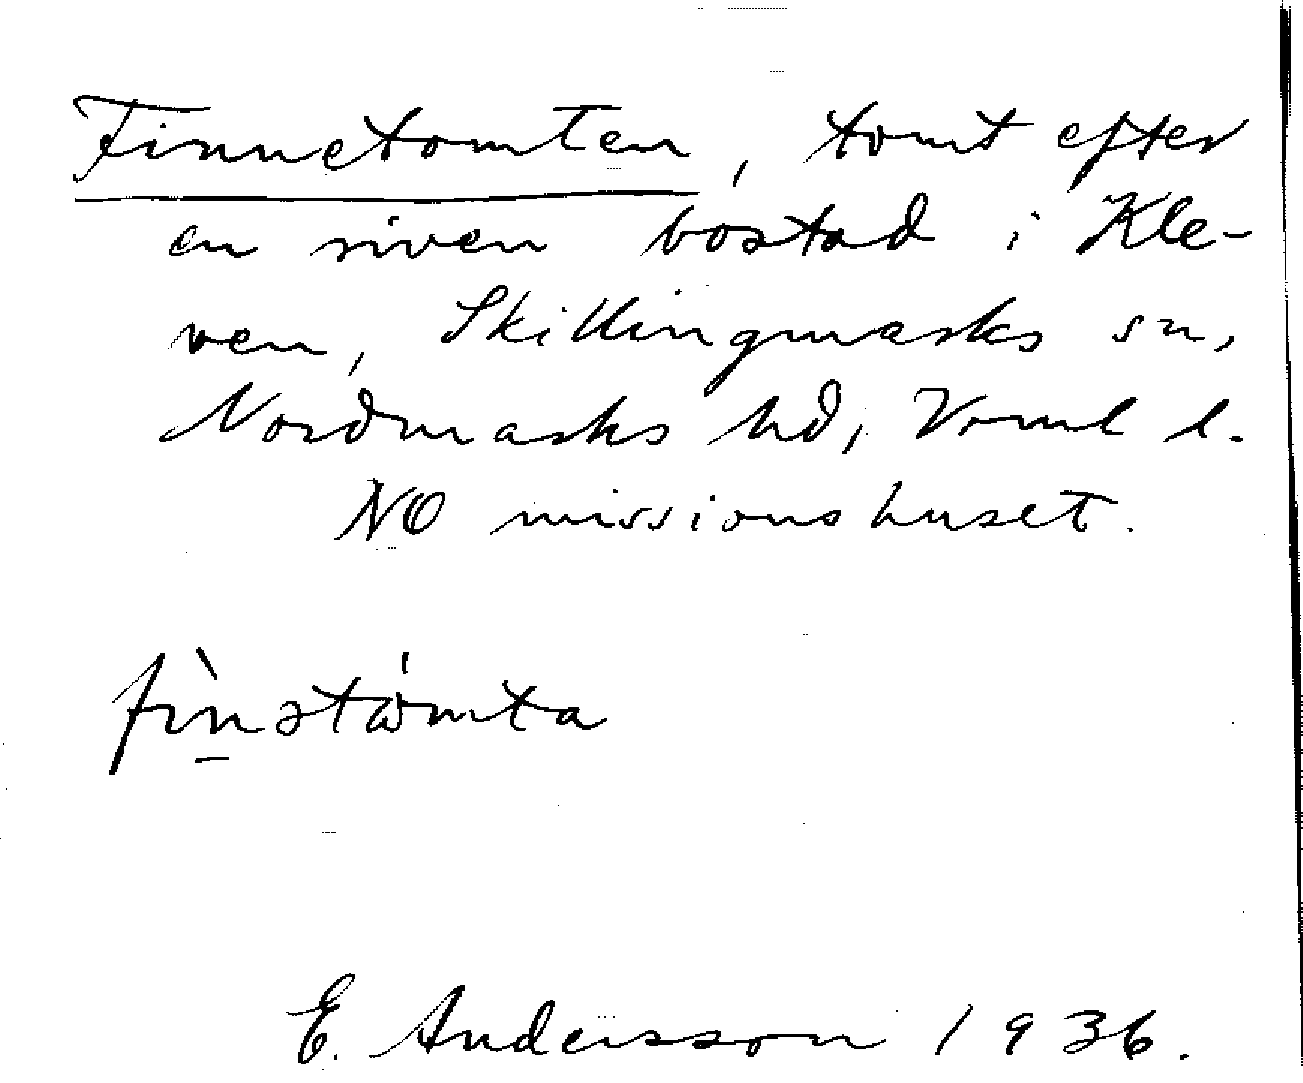 Finnetomten, tomt efter
en riven bostad i Kle-
ven, Skillingmarks sn,
Nordmarks hd, Vrml l.
NO missionshuset.
fìn̲ətὼmta
E. Andersson 1936.